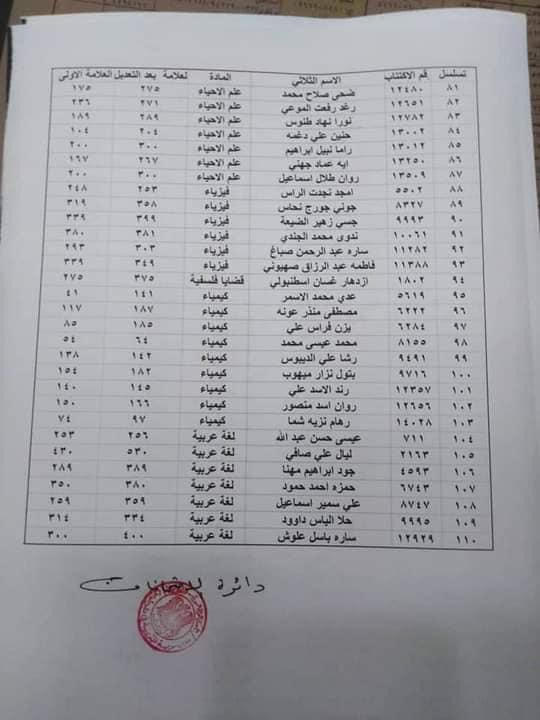 تسلسل رقم الاكتتاب الاسم الثلاثي المادة العلامة بعد التعديل العلامة الاولى
٨١ ١٢٤٨٠ ضحى صلاح محمد علم الاحياء ٢٧٥ ١٧٥
٨٢ ١٢٦٥١ رغد رفعت الموعي علم الاحياء ٢٧١ ٢٣٦
٨٣ ١٢٧٨٢ نورا نهاد طنوس علم الاحياء ٢٨٩ ١٨٩
٨٤ ١٣٠٠٢ حنين علي دغمه علم الاحياء ٢٠٤ ١٠٤
٨٥ ١٣٠١٢ راما نبيل ابراهيم علم الاحياء ٣٠٠ ٢٠٠
٨٦ ١٣٢٥٠ ايه عماد جهني علم الاحياء ٢٦٧ ١٦٧
٨٧ ١٣٥٠٩ روان طلال اسماعيل علم الاحياء ٣٠٠ ٢٠٠
٨٨ ٥٥٠٢ امجد نجدت الراس فيزياء ٢٥٣ ٢٤٨
٨٩ ٨٣٢٧ جوني جورج نحاس فيزياء ٣٥٨ ٣١٩
٩٠ ٩٩٩٣ جسي زهير الضيعة فيزياء ٣٩٩ ٣٣٩
٩١ ١٠٠٦١ ندوى محمد الجندي فيزياء ٣٨١ ٣٨٠
٩٢ ١١٢٨٢ ساره عبد الرحمن صباغ فيزياء ٣٠٣ ٢٩٣
٩٣ ١١٣٨٨ فاطمه عبد الرزاق صهيوني فيزياء ٣٤٩ ٣٣٩
٩٤ ١٨٠٢ ازدهار غسان اسطنبولي قضايا فلسفية ٣٧٥ ٢٧٥
٩٥ ٥٦١٩ عدي محمد الاسمر كيمياء ١٤١ ٤١
٩٦ ٦٢٢٢ مصطفى منذر عونه كيمياء ١٨٧ ١١٧
٩٧ ٦٢٨٤ يزن فراس علي كيمياء ١٨٥ ٨٥
٩٨ ٨١٥٥ محمد عيسى محمد كيمياء ٦٤ ٥٤
٩٩ ٩٤٩١ رشا علي الديبوس كيمياء ١٤٢ ١٣٨
١٠٠ ٩٧١٦ بتول نزار ميهوب كيمياء ١٨٢ ١٥٤
١٠١ ١٢٣٥٧ رند الاسد علي كيمياء ١٤٥ ١٤٠
١٠٢ ١٢٦٥٦ روان اسد منصور كيمياء ١٦٦ ١٥٠
١٠٣ ١٤٠٢٨ رهام نزيه شما كيمياء ٩٧ ٧٤
١٠٤ ٧١١ عيسى حسن عبد الله لغة عربية ٢٥٦ ٢٥٣
١٠٥ ٢١٦٣ ليال علي صافي لغة عربية ٥٣٠ ٤٣٠
١٠٦ ٤٥٩٣ جود ابراهيم مهنا لغة عربية ٣٨٩ ٢٨٩
١٠٧ ٦٧٤٣ حمزه احمد حمود لغة عربية ٣٨٠ ٣٥٠
١٠٨ ٨٧٤٧ علي سمير اسماعيل لغة عربية ٣٥٩ ٢٥٩
١٠٩ ٩٩٩٥ حلا الياس داوود لغة عربية ٣٣٤ ٣١٤
١١٠ ١٢٩٢٩ ساره باسل علوش لغة عربية ٤٠٠ ٣٠٠
دائرة الامتحانات